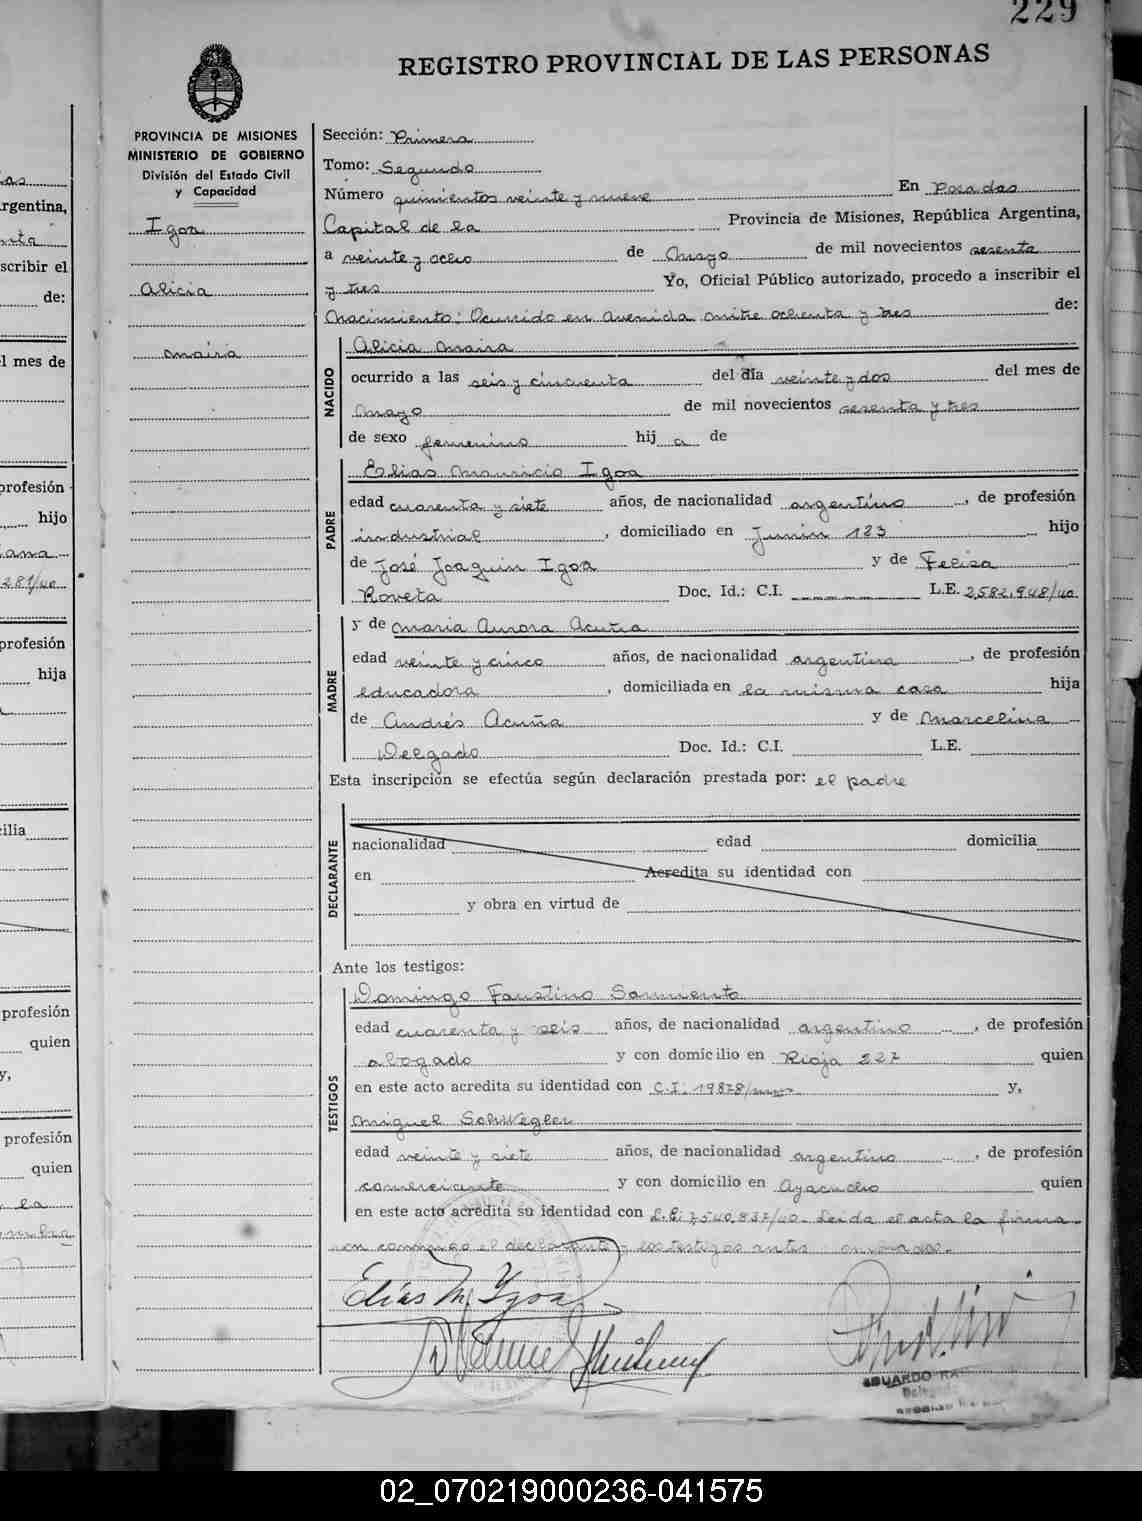 229
REGISTRO PROVINCIAL DE LAS PERSONAS
PROVINCIA DE MISIONES
MINISTERIO DE GOBIERNO
División del Estado Civil
y Capacidad
Igoa
Alicia
Maira
Sección: Primera
Tomo: Segundo
Número quinientos veinte y nueve En Posadas
Capital de la Provincia de Misiones, República Argentina,
a veinte y ocho de Mayo de mil novecientos sesenta
y tres Yo, Oficial Público autorizado, procedo a inscribir el
Nacimiento: Ocurrido en Avenida Mitre ochenta y tres de:
NACIDO
Alicia Maira
ocurrido a las seis y cincuenta del día veinte y dos del mes de
Mayo de mil novecientos sesenta y tres
de sexo femenino hij a de
PADRE
Elias Mauricio Igoa
edad cuarenta y siete años, de nacionalidad argentino, de profesión
industrial, domiciliado en Junin 123 hijo
de José Joaquin Igoa y de Felisa
Roveta Doc. Id.: C.I. L.E. 2.582.948/40
MADRE
y de Maria Aurora Acuña
edad veinte y cinco años, de nacionalidad argentina, de profesión
educadora, domiciliada en la misma casa hija
de Andrés Acuña y de Marcelina
Delgado Doc. Id.: C.I. L.E.
Esta inscripción se efectúa según declaración prestada por: el padre
DECLARANTE
nacionalidad edad domicilia
en Acredita su identidad con
y obra en virtud de
Ante los testigos:
TESTIGOS
Domingo Faustino Sarmiento
edad cuarenta y seis años, de nacionalidad argentino, de profesión
abogado y con domicilio en Rioja 227 quien
en este acto acredita su identidad con C.I: 19878/ y,
Miguel
edad veinte y siete años, de nacionalidad argentino, de profesión
comerciante y con domicilio en Ayacucho quien
en este acto acredita su identidad con L.E: 7.540.837/40. Leida el acta la firma
con conmigo el declarante y los testigos antes
Elías M. Ygoa
EDUARDO
rgentina,
scribir el
de:
l mes de
profesión
hijo
281/40
profesión
hija
cilia
profesión
quien
y,
profesión
quien
la
02_070219000236-041575